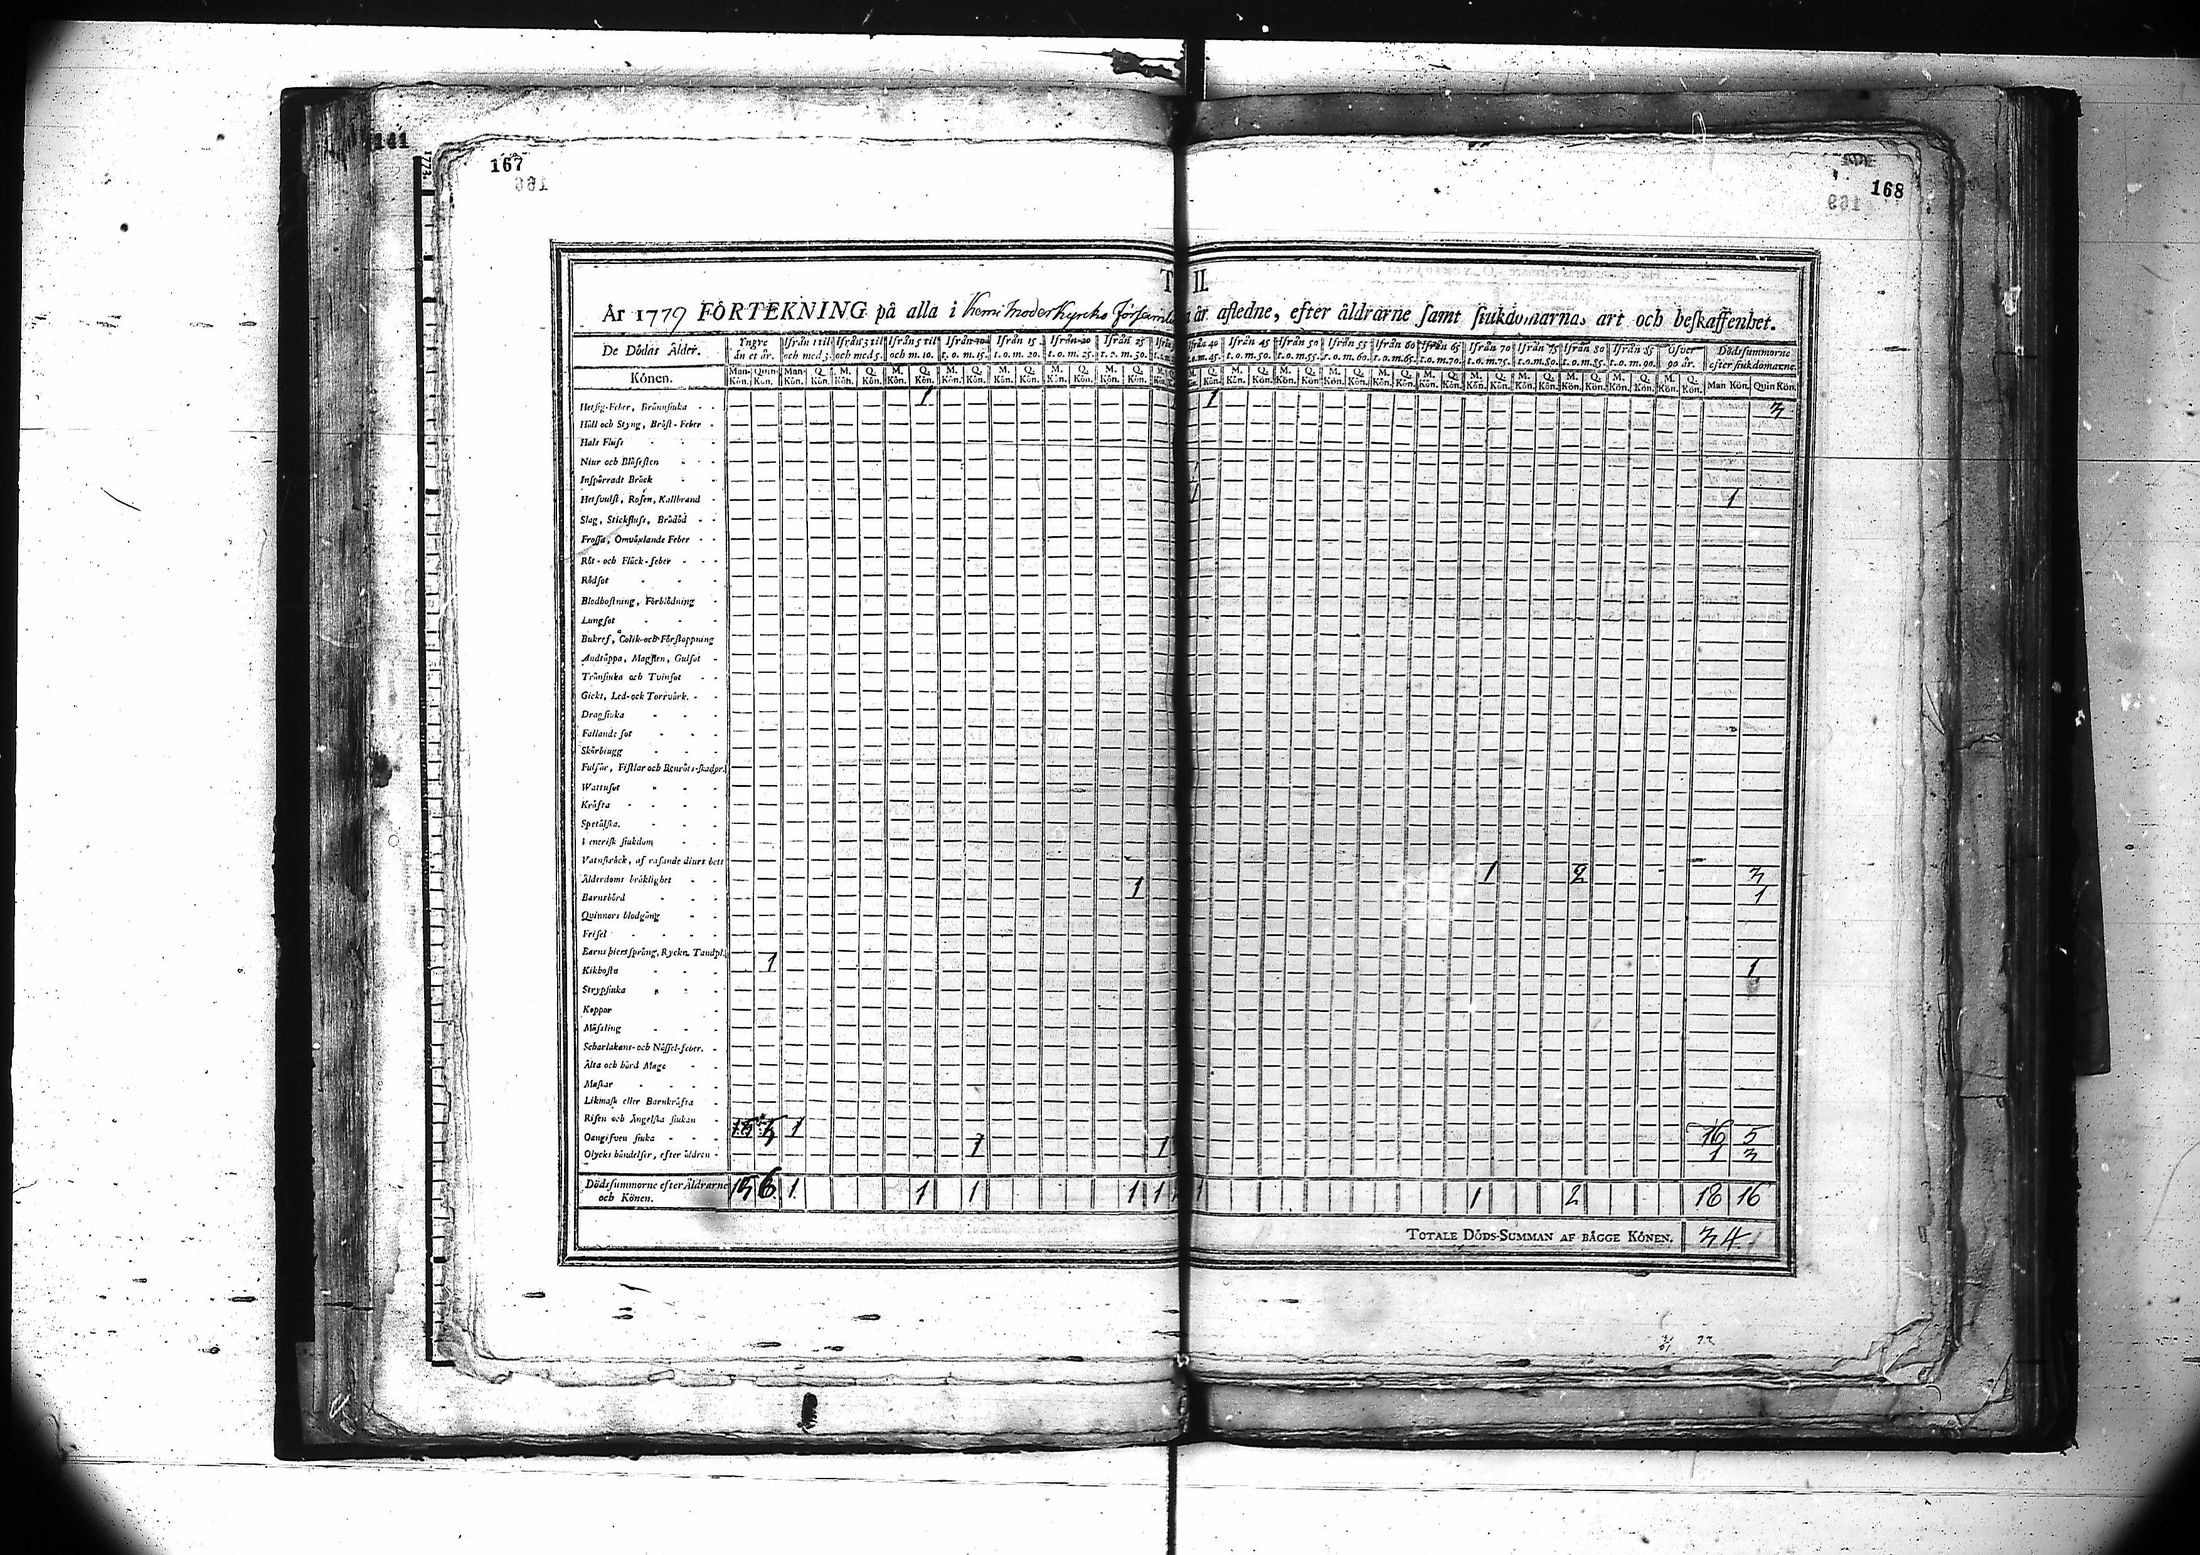 141
167
168
T II.
År 1779 FÖRTEKNING på alla i Kemi Moderkyrcko Församl år afledne, efter åldrarne samt siukdomarnas art och beskaffenhet.
De Dödas Ålder. Yngre än et år. Ifrån 1 til och med 3. Ifrån 3 til och med 5. Ifrån 5 til och m. 10. Ifrån 10 t. o. m. 15. Ifrån 15 t. o. m. 20. Ifrån 20 t. o. m. 25. Ifrån 25 t. o. m. 30. Ifrån 40 t. o. m. 45. Ifrån 45 t. o. m. 50. Ifrån 50 t. o. m. 55. Ifrån 55 t. o. m. 60. Ifrån 60 t. o. m. 65. Ifrån 65 t. o. m. 70. Ifrån 70 t. o. m. 75. Ifrån 75 t. o. m. 80. Ifrån 80 t. o. m. 85. Ifrån 85 t. o. m. 90. Öfver 90 år. Dödssummorne efter siukdomarne.
Könen. Man-Kön. Quin-Kön. Man-Kön. Q. Kön. M. Kön. Q. Kön. M. Kön. Q. Kön. M. Kön. Q. Kön. M. Kön. Q. Kön. M. Kön. Q. Kön. M. Kön. Q. Kön. Man Kön. Quin Kön.
Hetsig-Feber, Brännsiuka 1 1 3
Håll och Styng, Bröst-Feber
Hals Fluss
Niur och Blåsesten
Inspärradt Bråck
Hetsvulst, Rosen, Kallbrand 1 1
Slag, Stickfluss, Brådöd
Frossa, Omväxlande Feber
Röt- och Fläck-feber
Rödsot
Blodhostning, Förblödning
Lungsot
Bukref, Colik-och Förstoppning
Andtäppa, Magsten, Gulsot
Trånsiuka och Tvinsot
Gickt, Led-ock Torrvärk.
Dragsiuka
Fallande sot
Skörbiugg
Fulsår, Fistlar och Benröts-skador
Wattusot
Kräfta
Spetälska.
Venerisk siukdom
Vatuskräck, af rasande diurs bett
Ålderdoms bräklighet 1 2 3
Barnsbörd 1 1
Quinnors blodgång
Frisel
Barns hiertsprång, Ryckn. Tandpl.
Kikhosta 1 1
Strypsiuka
Koppor
Mässling
Scharlakans-och Nässel-feber.
Älta och hård Mage
Maskar
Likmask eller Barnkräfta
Risen och Ängelska siukan
Oangifven siuka 15 5 1 16 5
Olycks händelser, efter åldren 1 1 1 3
Dödssummorne efter Åldrarne och Könen. 15 6 1 1 1 1 1 1 1 1 2 18 16
TOTALE DÖDS-SUMMAN AF BÅGGE KÖNEN. 34